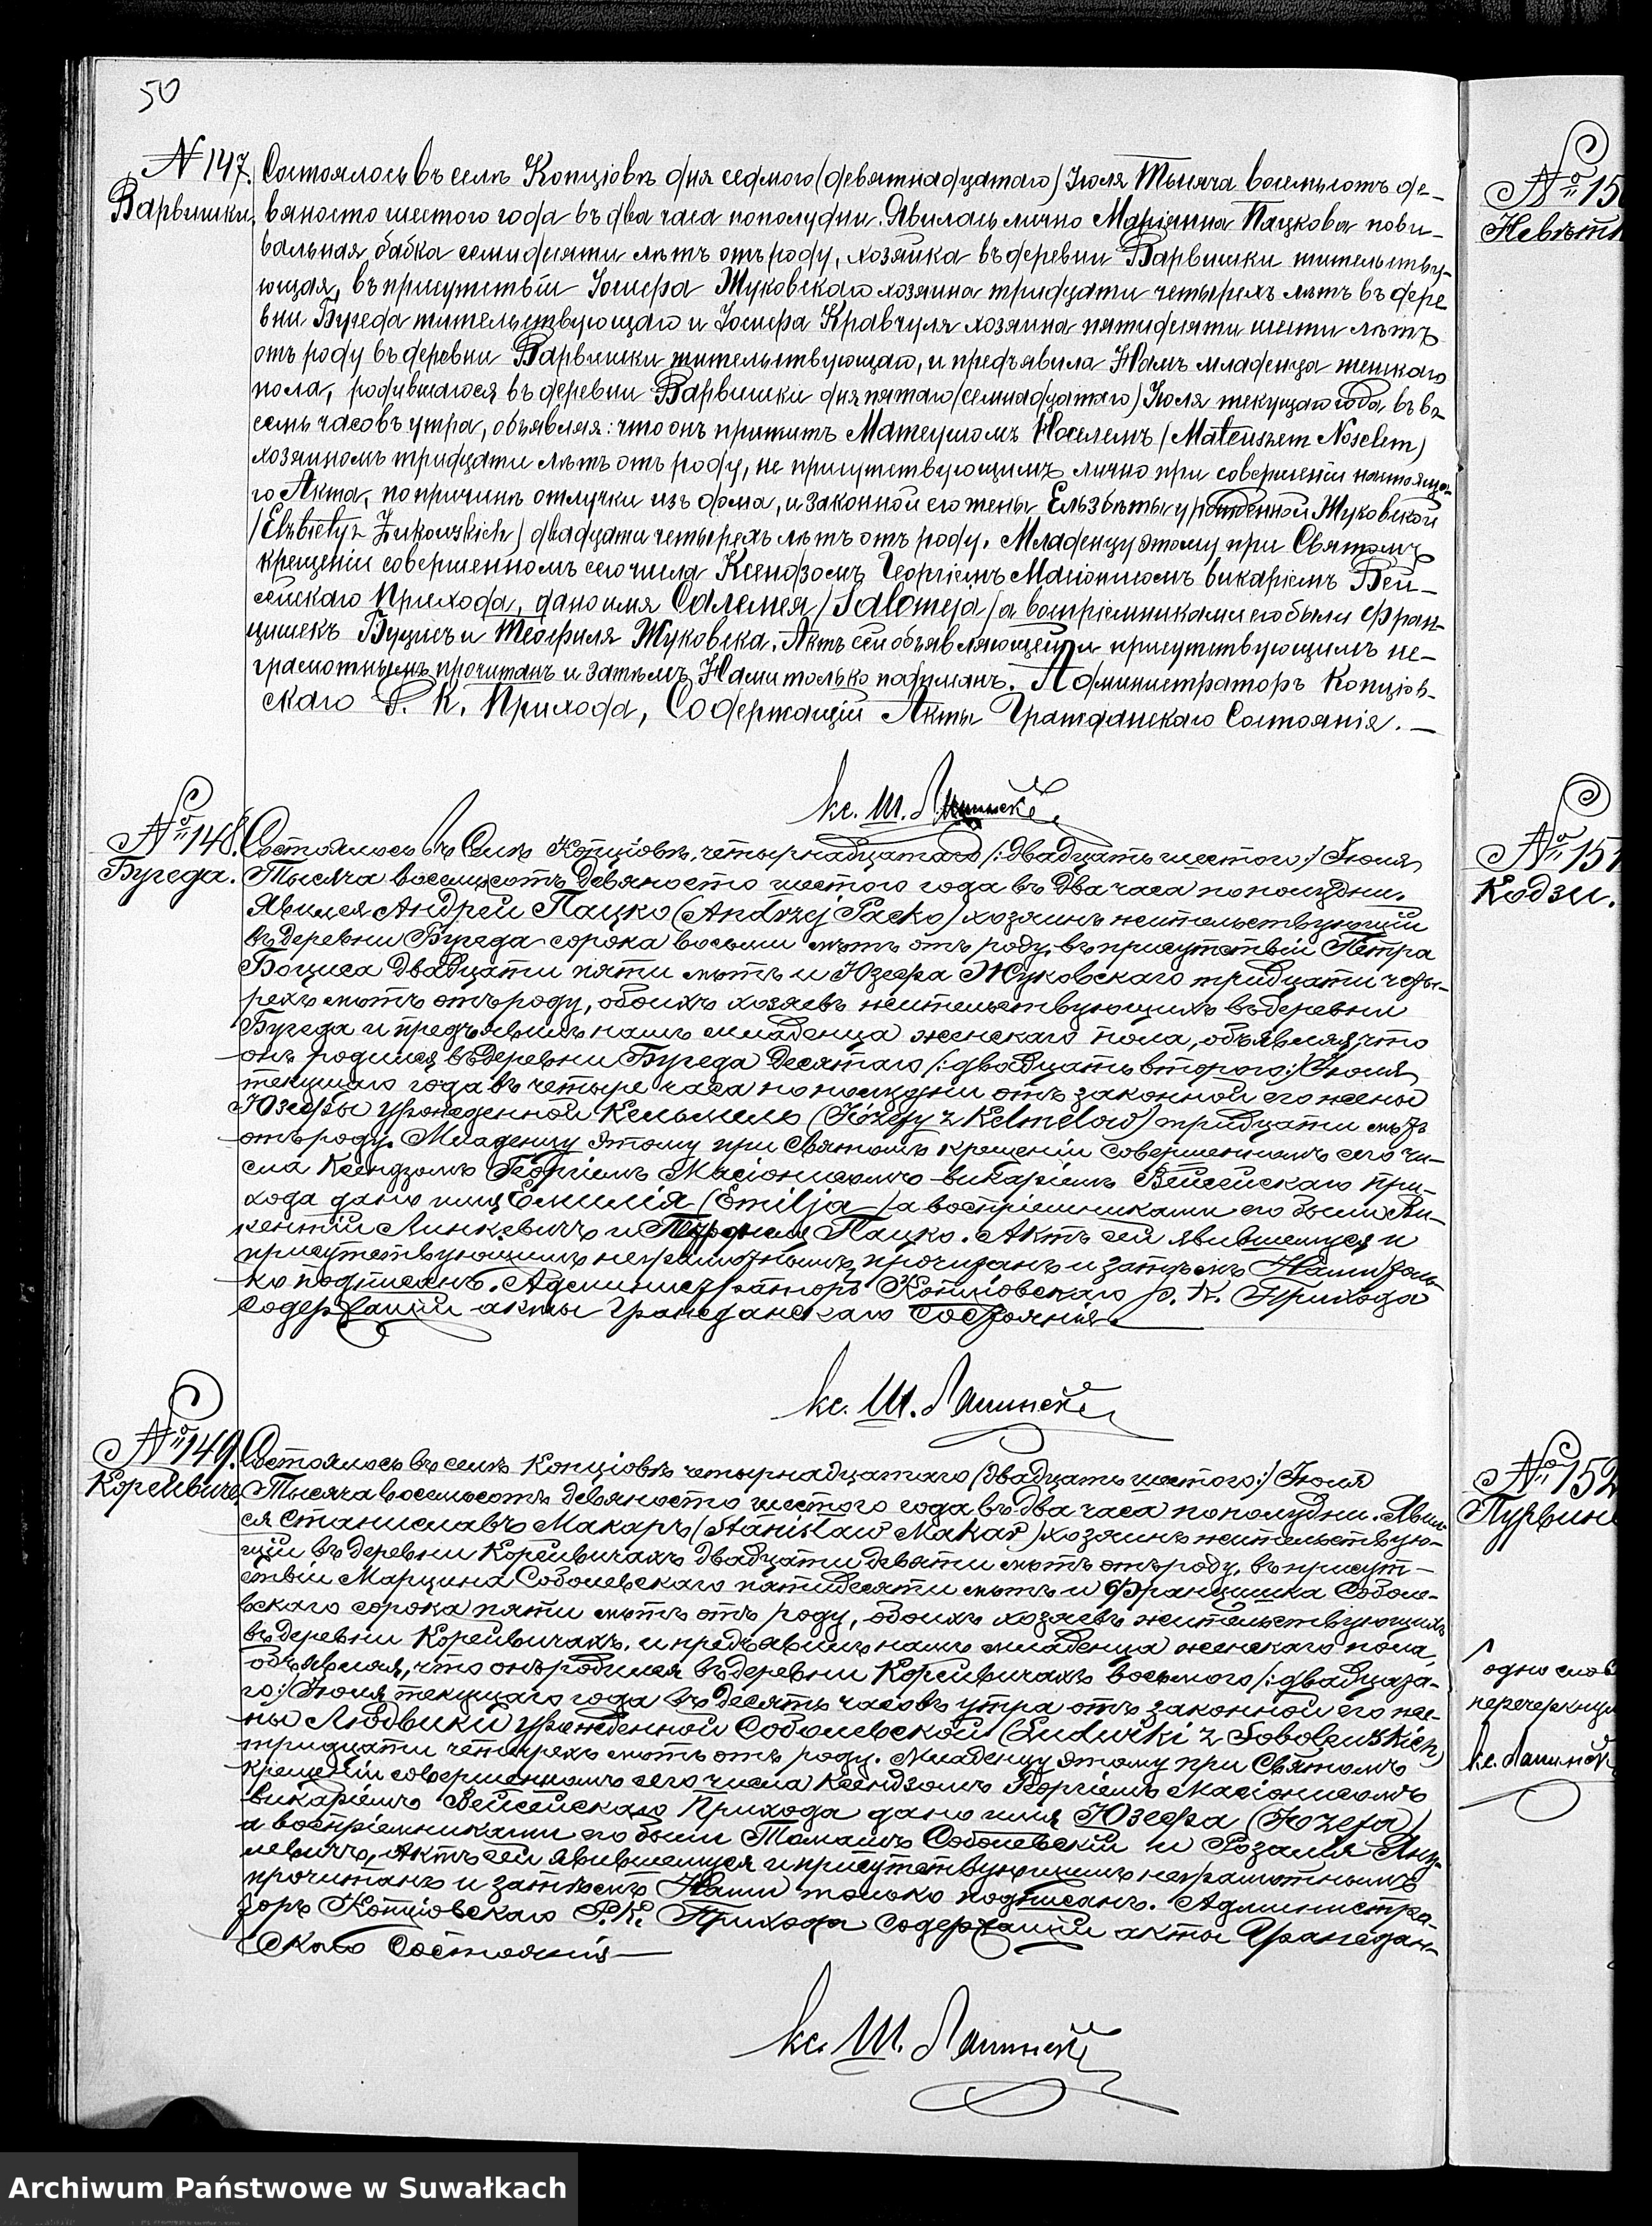 50
№ 147.
Варвишки.
Состоялось въ селѣ Копціовѣ дня седмого (девятнадцатаго) Іюля Тысяча восемьсотъ де-
вяносто шестого года въ два часа пополудни. Явилась лично Маріянна Пацкова пови-
вальная бабка семидесяти лѣтъ отъ роду, хозяйка въ деревни Варвишки жительству-
ющая, въ присутствіи Іосифа Жуковскаго хозяина тридцати четырехъ лѣтъ въ дере
вни Бугеда жительствующаго и Іосифа Кравчуля хозяина пятидесяти шести лѣтъ
отъ роду въ деревни Варвишки жительствующаго, и предъявила Намъ младенца женскаго
пола, родившагося въ деревни Варвишки дня пятаго (семнадцатаго) Іюля текущаго года въ во-
семь часовъ утра, объявляя: что онъ прижитъ Матеушомъ Носелемъ (Mateuszem Noselem)
хозяиномъ тридцати лѣтъ отъ роду, не присутствующимъ лично при совершеніи настояща-
го Акта, по причинѣ отлучки изъ дома, и законной его жены Ельзбѣты урожденной Жуковской
(Elżbiety z Żukowskich) двадцати четырехъ лѣтъ отъ роду. Младенцу этому при Святомъ
крещеніи совершенномъ сего числа Ксендзомъ Георгіемъ Масіонисомъ викаріемъ Вей-
сейскаго Прихода, дано имя Саломея (Salomeja) а воспріемниками его были Фран-
цишекъ Буцисъ и Теофиля Жуковска. Актъ сей объявляющей и присутствующимъ не-
грамотнымъ прочитанъ и затѣмъ Нами только подписанъ. Администраторъ Копціов-
скаго Р. К. Прихода, Содержащій Акты Гражданскаго Состоянія.
кс. Ш.
№ 148.
Бугеда.
Состоялось въ Селѣ Копціовѣ, четырнадцатаго (:двадцать шестого:) Іюня
Тысяча восемьсотъ девяносто шестого года въ два часа пополудни.
Явился Андрей Пацко (Andrzej Packo) хозяинъ жительствующій
въ деревни Бугеда сорока восьми лѣтъ отъ роду, въ присутствіи Петра
Боциса двадцати пяти лѣтъ и Юзефа Жуковскаго тридцати четы-
рехъ лѣтъ отъ роду, обоихъ хозяевъ жительствующихъ въ деревни
Бугеда и предъявилъ намъ младенца женскаго пола, объявляя, что
онъ родился въ деревни Бугеда десятаго (:двадцать второго:) Іюня
текущаго года въ четыре часа по полудни отъ законной его жены
Юзефы урожденной Кельмель (Józefy z Kelmelow) тридцати лѣтъ
отъ роду. Младенцу этому при Святомъ крещеніи совершенномъ сего чи-
сла Ксендзомъ Георгіемъ Масіонисомъ викаріемъ Вейсейскаго При-
хода дано имя Емилія (Emilja) а воспріемниками его были Ви-
кентій Линкевичъ и Теофиля Пацко. Актъ сей явившемуся и
присутствующимъ неграмотнымъ прочитанъ и затѣмъ Нами толь-
ко подписанъ. Администраторъ Копціовскаго Р. К. Прихода
Содержащій акты Гражданскаго Состоянія.
кс. Ш.
№ 149.
Корейвиче
Состоялось въ селѣ Копціовѣ четырнадцатаго (двадцать шестого:) Іюня
Тысяча восемьсотъ девяносто шестого года въ два часа пополудни. Явил-
ся Станиславъ Макаръ (Stanisław Makar) хозяинъ жительствую-
щій въ деревни Корейвичахъ двадцати девяти лѣтъ отъ роду, въ присут-
ствіи Марцина Соболевскаго пятидесяти лѣтъ и Францишка Соболе-
вскаго сорока пяти лѣтъ отъ роду, обоихъ хозяевъ жительствующихъ
въ деревни Корейвичахъ, и предъявилъ намъ младенца женскаго пола,
объявляя, что онъ родился въ деревни Корейвичахъ восьмого (:двадцата-
го:) Іюня текущаго года въ десять часовъ утра отъ законной его же-
ны Людвики урожденной Соболевской (Ludwiki z Sobolewskich)
тридцати четырехъ лѣтъ отъ роду. Младенцу этому при Святомъ
крещеніи совершенномъ сего числа Ксендзомъ Георгіемъ Масіонисомъ
викаріемъ Вейсейскаго Прихода дано имя Юзефа (Józefa)
а воспріемниками его были Томашъ Соболевскій и Розалія Анц-
левичъ, Актъ сей явившемуся и присутствующимъ неграмотнымъ
прочитанъ и затѣмъ Нами только подписанъ. Администра-
торъ Копціовскаго Р. К. Прихода содержащій акты Граждан-
скаго Состоянія
кс. Ш.
№ 15
№ 151
Кодзи.
№ 152
одно слов